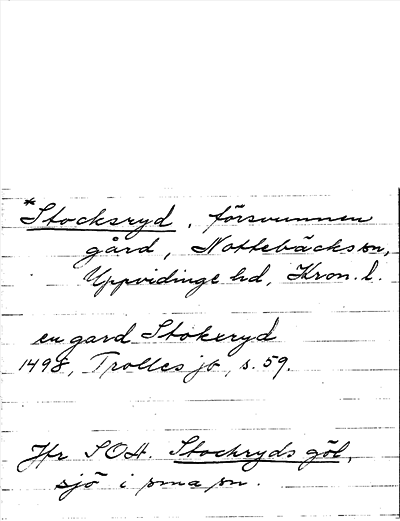 *Stocksryd, försvunnen
gård, Nottebäcks sn,
Uppvidinge hd, Kron. l.
en gard Stokeryd
1498, Trolles jb, s. 59.
Jfr SOH. Stockryds göl,
sjö i sma sn.